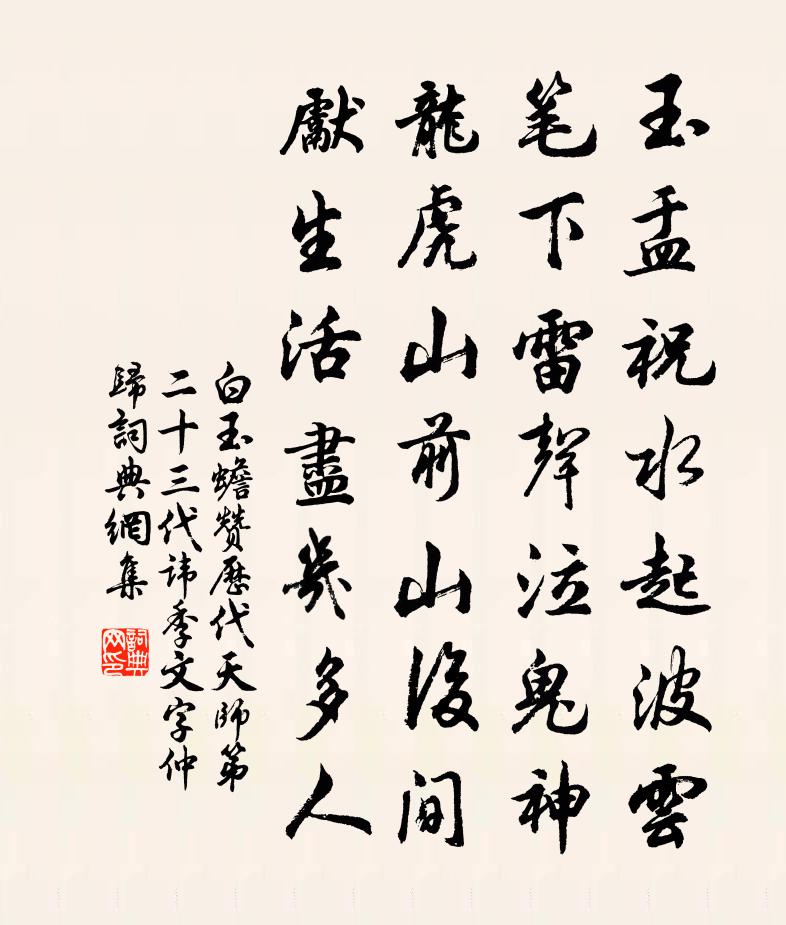 玉盂祝水起波雲
笔下雷聲泣鬼神
龍虎山前山後間
獻生活盡幾多人
白玉蟾赞歷代天師第
二十三代諱季文字仲
歸詞典網集
詞典网印